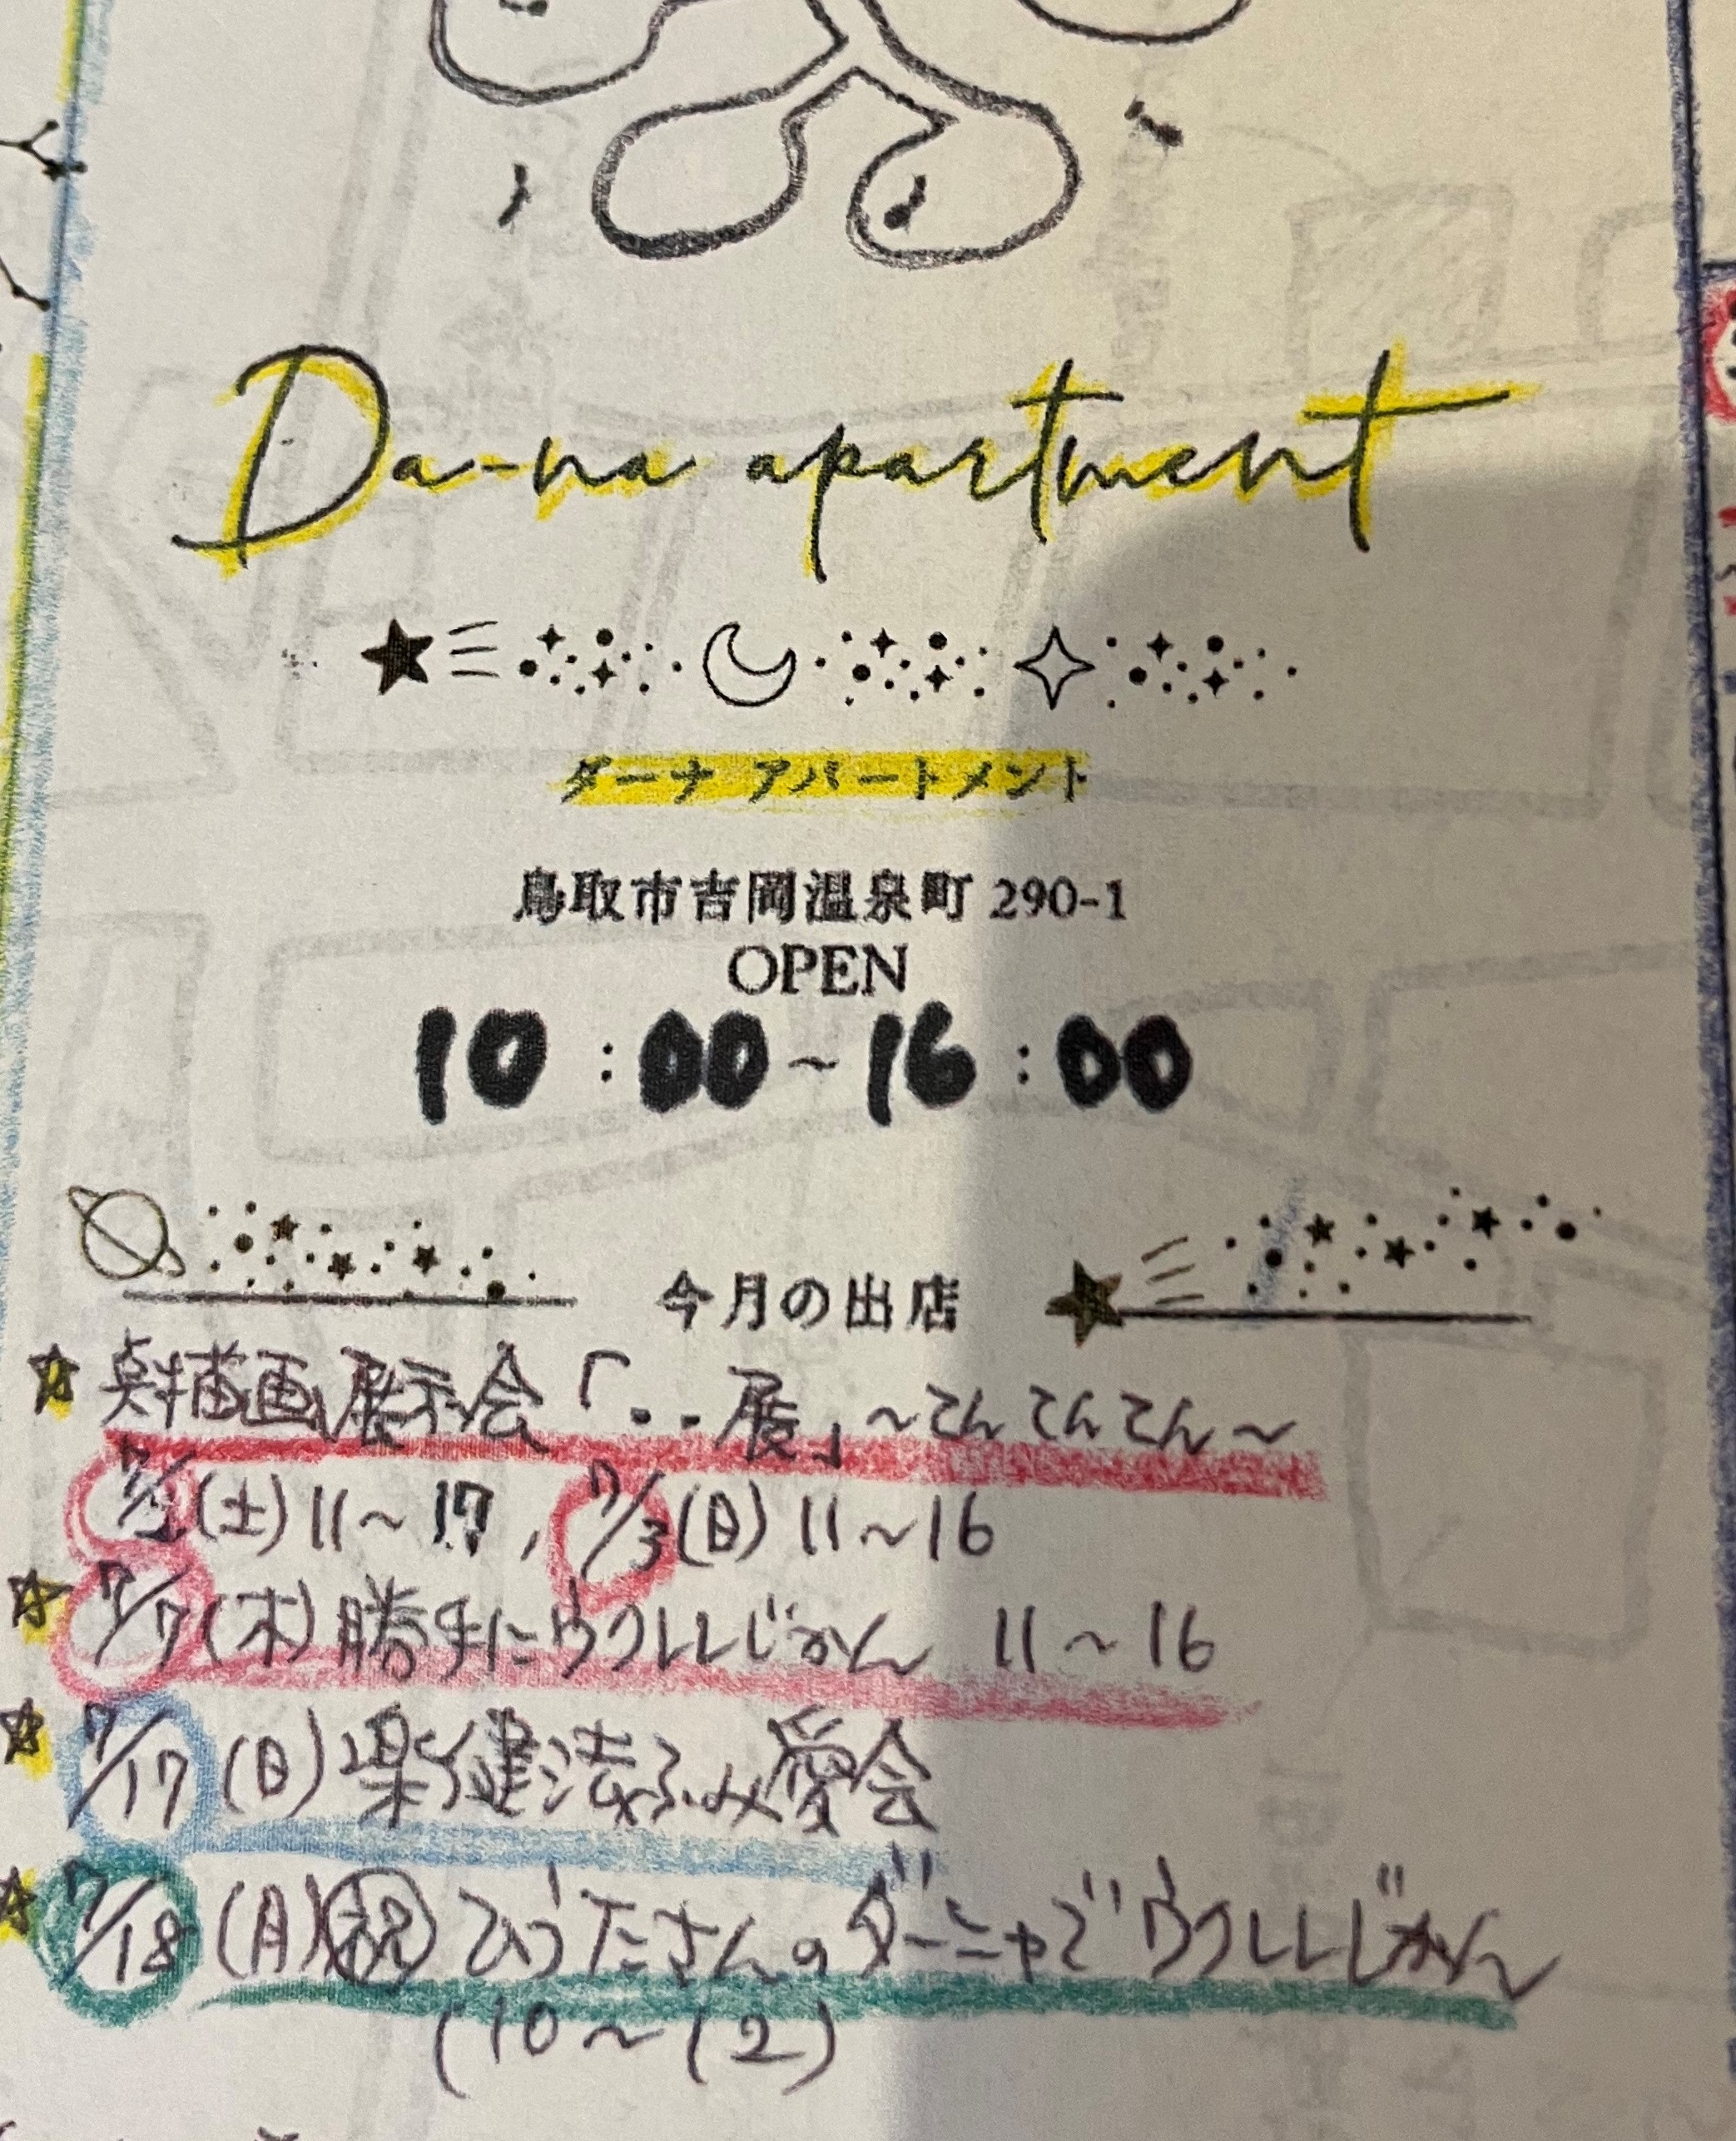 Da-na apartment
ダーナ アパートメント
鳥取市吉岡温泉町 290-1
OPEN
10:00~16:00
今月の出店
点描画展示会「・・展」~てんてんてん~
7/2(土)11~17, 7/3(日)11~16
7/7(木)勝手にウクレレじかん 11~16
7/17(日)楽健法ふみ愛会
7/18(月)祝 ひうたさんのダーニャでウクレレじかん
(10~12)